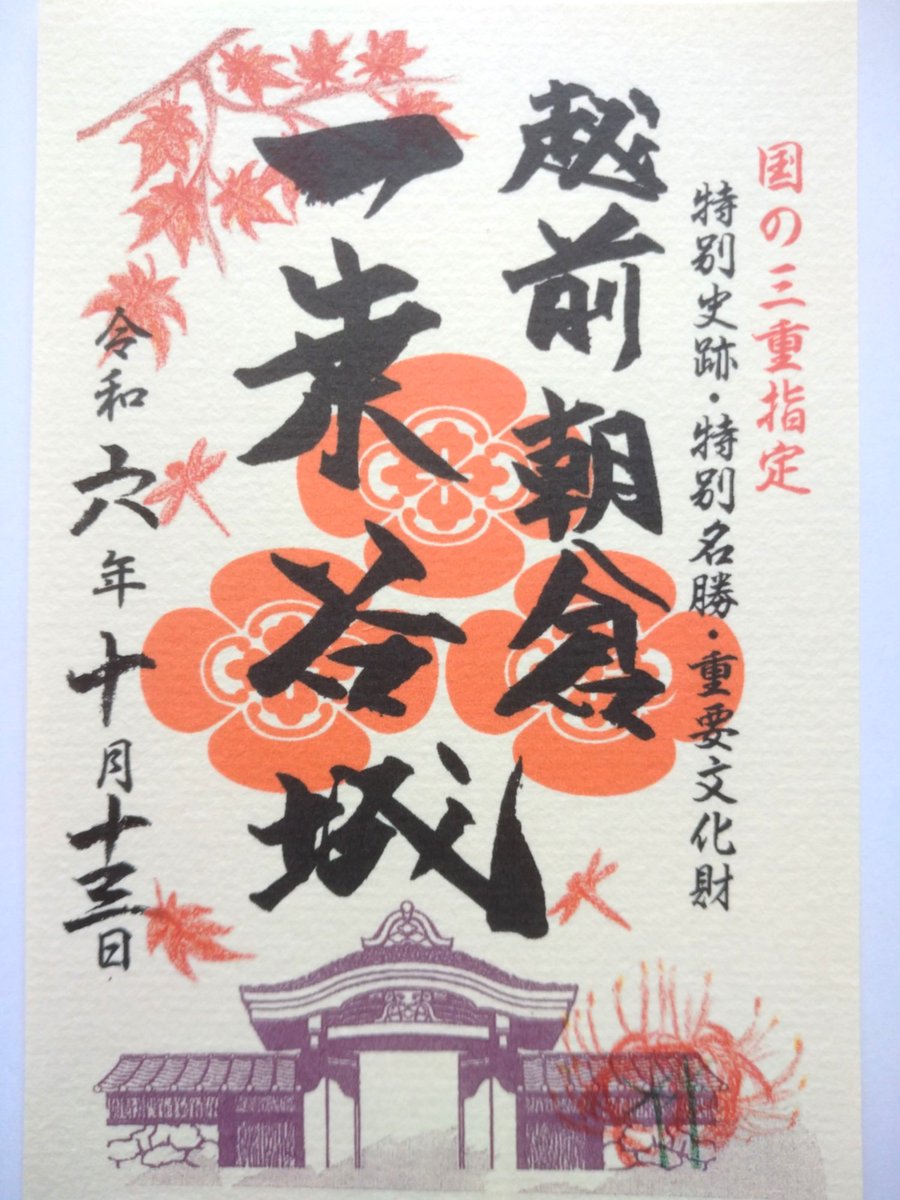 国の三重指定
特別史跡・特別名勝・重要文化財
越前朝倉
一乗谷城
令和六年十月十三日